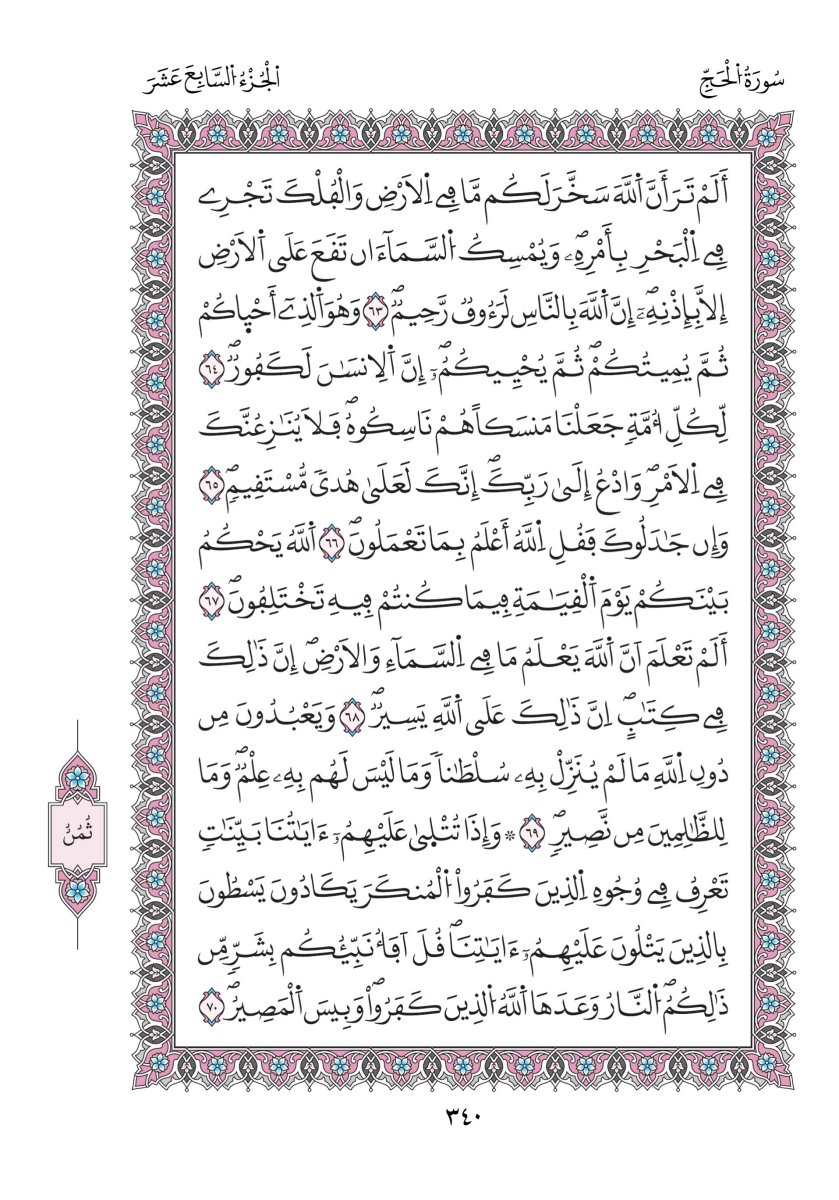 سُورَةُ اُ۬لْحَجِّ
اَ۬لْجُزْءُ اُ۬لسَّابِعَ عَشَرَ
أَلَمْ تَرَ أَنَّ اَ۬للَّهَ سَخَّرَ لَكُم مَّا فِے اِ۬لَارْضِ وَالْفُلْكَ تَجْرِے
فِے اِ۬لْبَحْرِ بِأَمْرِهِۦۖ وَيُمْسِكُ اُ۬لسَّمَآءَ ان تَقَعَ عَلَي اَ۬لَارْضِ
إِلَّا بِإِذْنِهِۦٓۖ إِنَّ اَ۬للَّهَ بِالنَّاسِ لَرَءُوفٞ رَّحِيمٞۖ ٦٣ وَهُوَ اَ۬لذِےٓ أَحْي۪اكُمْ
ثُمَّ يُمِيتُكُمْۖ ثُمَّ يُحْيِيكُمُۥٓۖ إِنَّ اَ۬لِانسَٰنَ لَكَفُورٞۖ ٦٤
لِّكُلِّ أُمَّةٖ جَعَلْنَا مَنسَكاً هُمْ نَاسِكُوهُۖ فَلَا يُنَٰزِعُنَّكَ
فِے اِ۬لَامْرِۖ وَادْعُ إِلَىٰ رَبِّكَۖ إِنَّكَ لَعَلَىٰ هُدىٗ مُّسْتَقِيمٖۖ ٦٥
وَإِن جَٰدَلُوكَ فَقُلِ اِ۬للَّهُ أَعْلَمُ بِمَا تَعْمَلُونَۖ ٦٦ اَ۬للَّهُ يَحْكُمُ
بَيْنَكُمْ يَوْمَ اَ۬لْقِيَٰمَةِ فِيمَا كُنتُمْ فِيهِ تَخْتَلِفُونَۖ ٦٧
أَلَمْ تَعْلَمَ اَنَّ اَ۬للَّهَ يَعْلَمُ مَا فِے اِ۬لسَّمَآءِ وَالَارْضِۖ إِنَّ ذَٰلِكَ
فِے كِتَٰبٍۖ اِنَّ ذَٰلِكَ عَلَي اَ۬للَّهِ يَسِيرٞۖ ٦٨ وَيَعْبُدُونَ مِن
دُونِ اِ۬للَّهِ مَا لَمْ يُنَزِّلْ بِهِۦ سُلْطَٰناٗ وَمَا لَيْسَ لَهُم بِهِۦ عِلْمٞۖ وَمَا
لِلظَّٰلِمِينَ مِن نَّصِيرٖۖ ٦٩ ۞ وَإِذَا تُتْل۪يٰ عَلَيْهِمُۥٓ ءَايَٰتُنَا بَيِّنَٰتٖ
تَعْرِفُ فِے وُجُوهِ اِ۬لذِينَ كَفَرُواْ اُ۬لْمُنكَرَ يَكَادُونَ يَسْطُونَ
بِالذِينَ يَتْلُونَ عَلَيْهِمُۥٓ ءَايَٰتِنَاۖ قُلَ اَفَأُنَبِّئُكُم بِشَرّٖ مِّن
ذَٰلِكُمُۖ اُ۬لنَّارُ وَعَدَهَا اَ۬للَّهُ اُ۬لذِينَ كَفَرُواْۖ وَبِيسَ اَ۬لْمَصِيرُۖ ٧٠
ثُمُنُ
٣٤٠